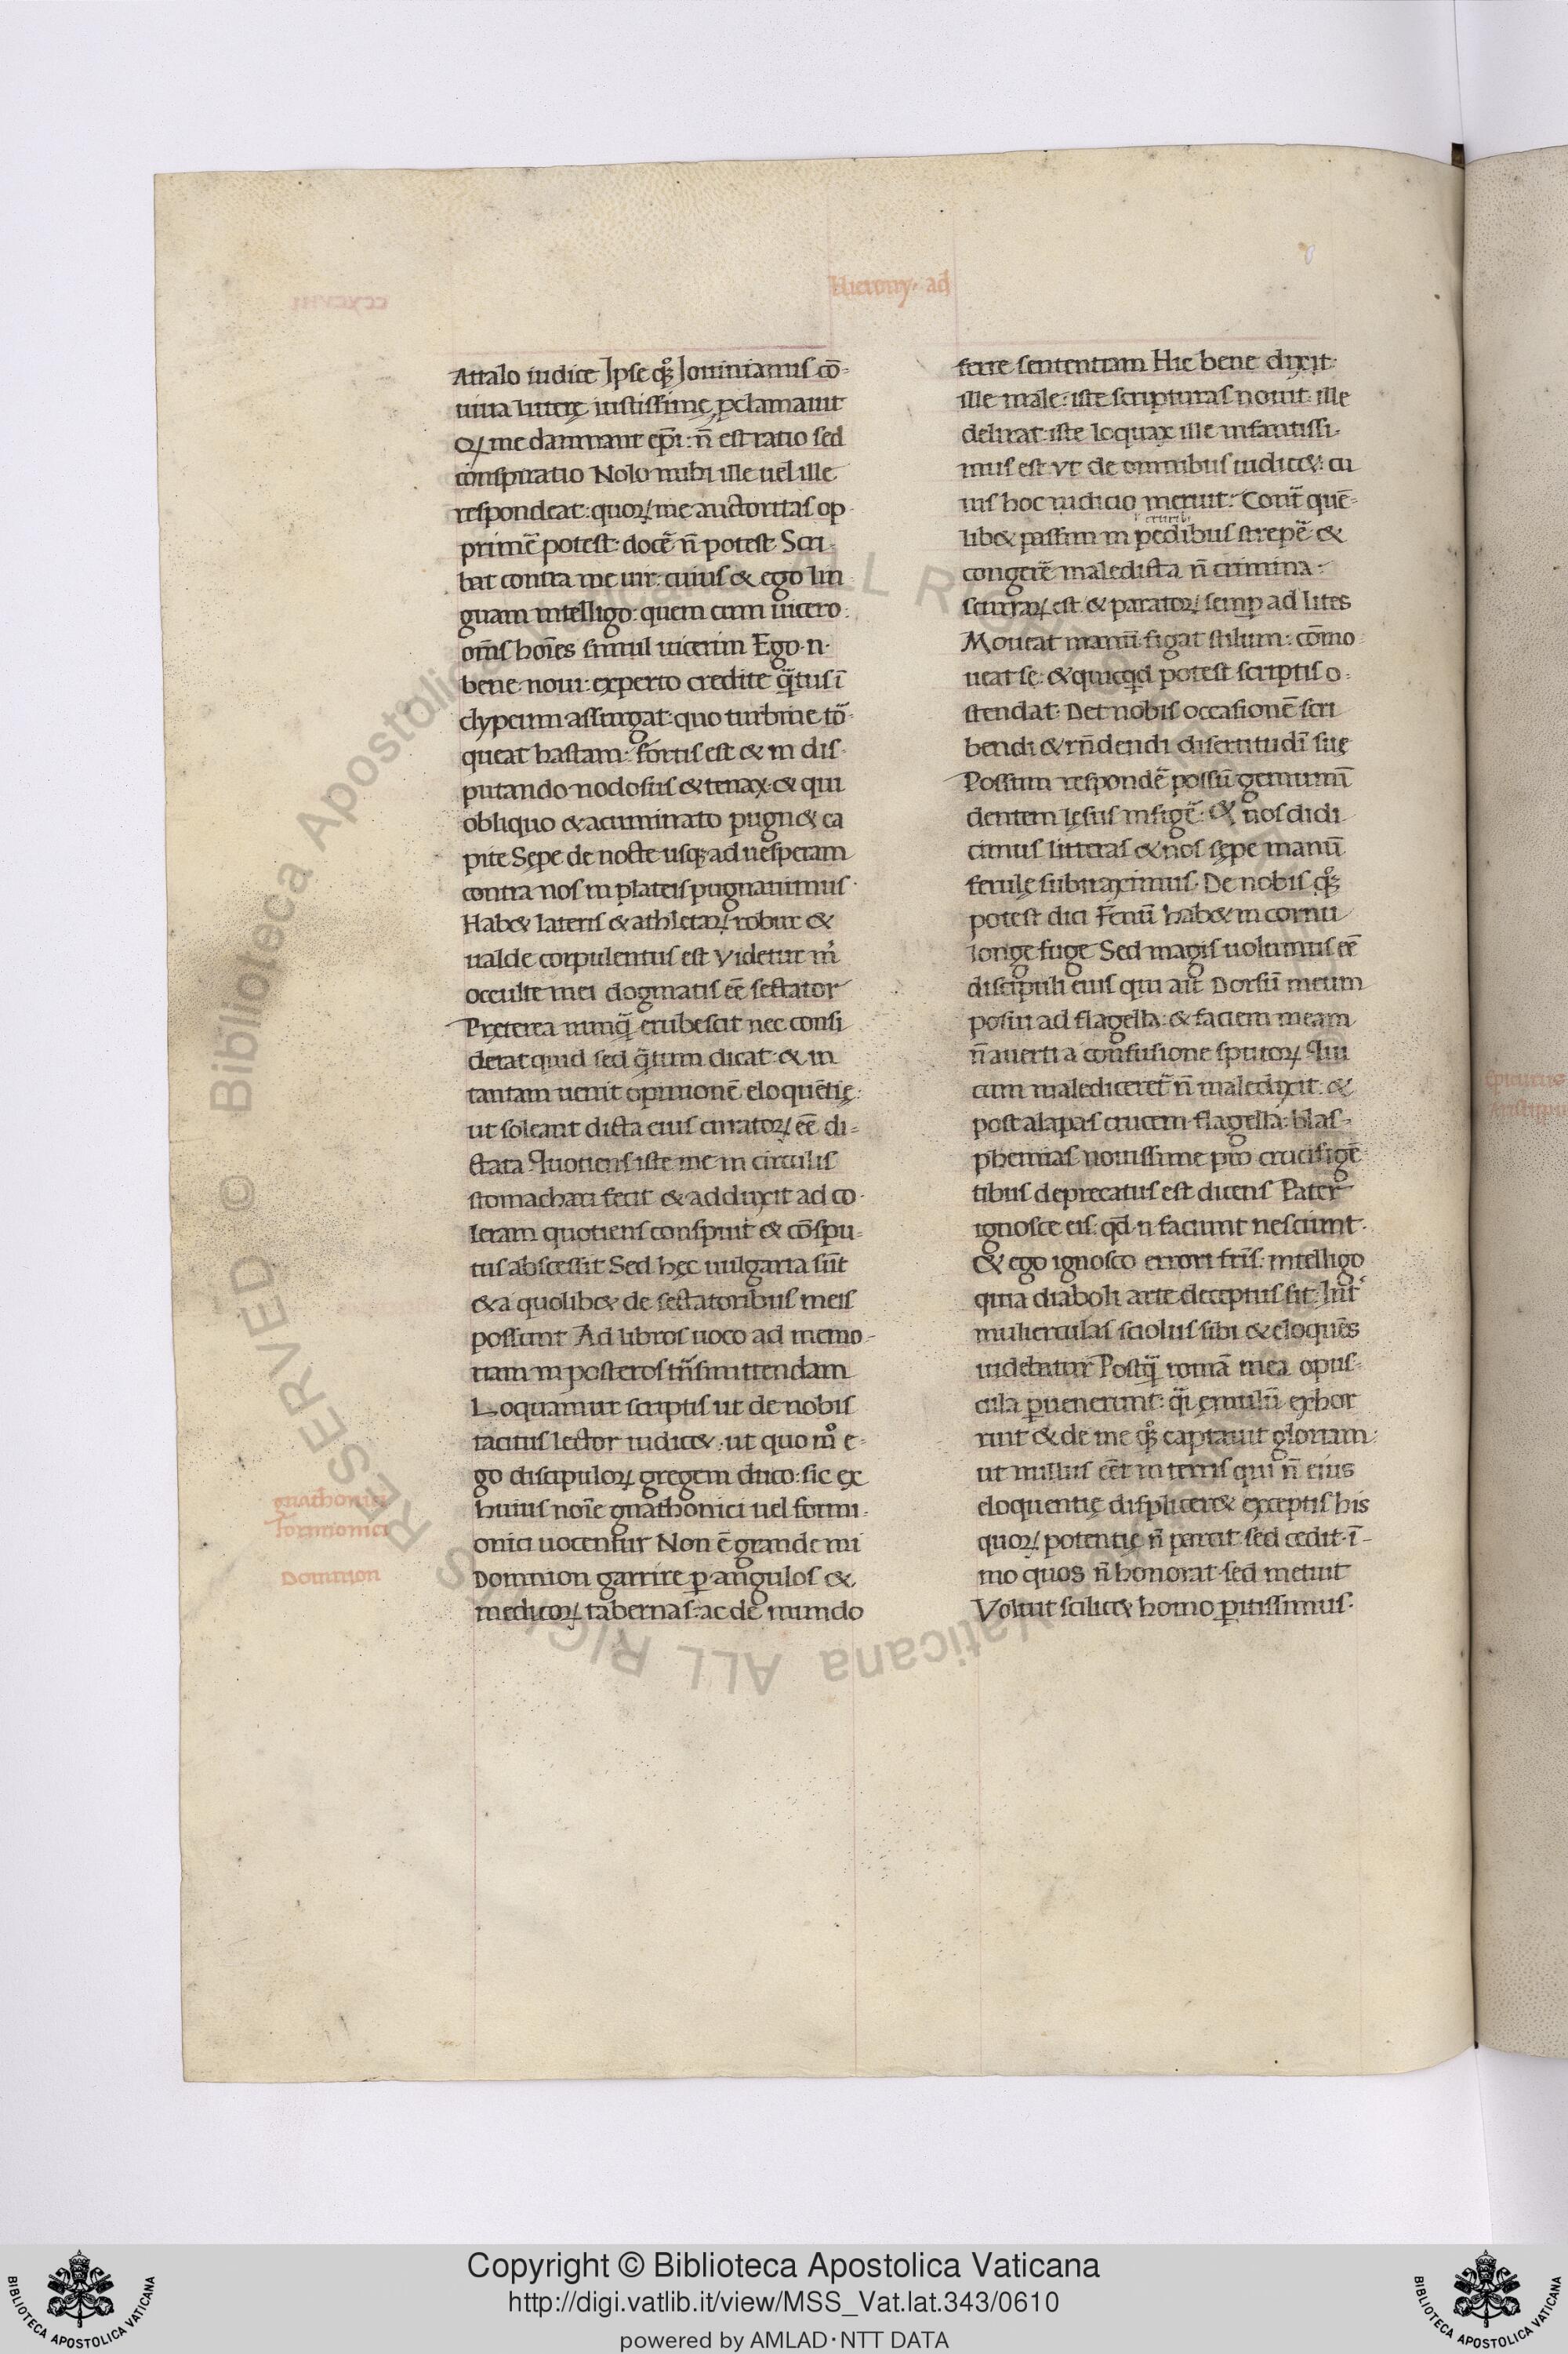 Hierony· ad
Attalo iudice Ipse qͦꝫ Iouinianus cō-
uiua luterę iustissimę ꝓclamauit
Qꝝ me damnant ep̄i: n̄ est ratio sed
conspiratio Nolo mihi ille uel ille
respondeat: quoꝝ me auctoritas op
primē potest: docē n̄ potest Scri-
bat contra me uir: cuius & ego lin
guam intelligo: quem cum uicero:
om̄s hoīes simul uicerim Ego·n·
bene noui: experto credite q̄tus ī
clypeum assurgat: quo turbine tō-
queat hastam: fortis est & in dis-
putando nodosus & tenax: & qui
obliquo & acuminato pugn& ca
pite Sępe de nocte usqꝫ ad uesperam
contra nos in plateis pugnauimus·
Hab& lateris & athletaꝝ robur &
ualde corpulentus est Videtur m̄
occulte mei dogmatis eē sectator
Pręterea nunq̄ erubescit nec consi
derat quid sed q̄tum dicat: & in
tantam uenit opinionē eloquētię:
ut soleant dicta eius curatoꝝ eē di-
ctata Quotiens iste me in circulis
stomachari fecit & adduxit ad co-
leram quotiens conspuit & cōspu-
tus abscessit Sed hęc uulgaria sūt
& a quolib& de sectatoribus meis
possunt Ad libros uoco ad memo-
riam in posteros tn̄smittendam
Loquamur scriptis ut de nobis
tacitus lector iudic&: ut quo mͦ e-
go discipuloꝝ gregem duco: sic ex
huius noīe gnathonici uel formi-
onici uocentur Non ē grande mi
Domnion garrire ꝑ angulos &
medicoꝝ tabernas: ac de mundo
gnathonici
formionici
Domnion
ferre sententiam Hic bene dixit:
ille male: iste scripturas nouit: ille
delirat: iste loquax ille infantissi-
mus est Vt de omnibus iudic&: cu
ius hoc iudicio meruit: Cont̄ quē-
lib& passim in pedibus strepē: &
congerē maledicta n̄ crimina:
scurraꝝ est & paratoꝝ semꝑ ad lites
Moueat manū: figat stilum: cōmo
ueat se: & quicqd potest scriptis o-
stendat· Det nobis occasionē scri
bendi & rn̄dendi disertitudī suę
Possum respondē possū genuinū
dentem lęsus infigē: & nos didi
cimus litteras & nos sępe manū
ferulę subtraximus· De nobis qͦꝫ
potest dici Fenū hab& in cornu
longe fuge Sed magis uolumus eē
discipuli eius qui ait Dorsū meum
posui ad flagella: & faciem meam
n̄ auerti a confusione sputoꝝ Qui
cum malediceret̄ n̄ maledixit: &
post alapas crucem flagella: blas-
phemias nouissime pro crucifigē-
tibus deprecatus est dicens Pater
ignosce eis: qd̄·n faciunt nesciunt·
& ego ignosco errori fr̄is: intelligo
quia diaboli arte deceptus sit: Int̄
mulierculas sciolus sibi & eloquēs
uidebatur Postq̄ romā mea opus-
cula ꝑuenerunt: q̄i ęmulū exhor
ruit & de me qͦꝫ captauit gloriam:
ut nullus eēt in terris qui n̄ eius
eloquentię displicer& exceptis his
quoꝝ potentię n̄ parcit sed cedit: ī-
mo quos n̄ honorat sed metuit
Voluit scilic& homo ꝑitissimus·
Copyright © Biblioteca Apostolica Vaticana
http://digi.vatlib.it/view/MSS_Vat.lat.343/0610
powered by AMLAD·NTT DATA
BIBLIOTECA APOSTOLICA VATICANA
BIBLIOTECA APOSTOLICA VATICANA